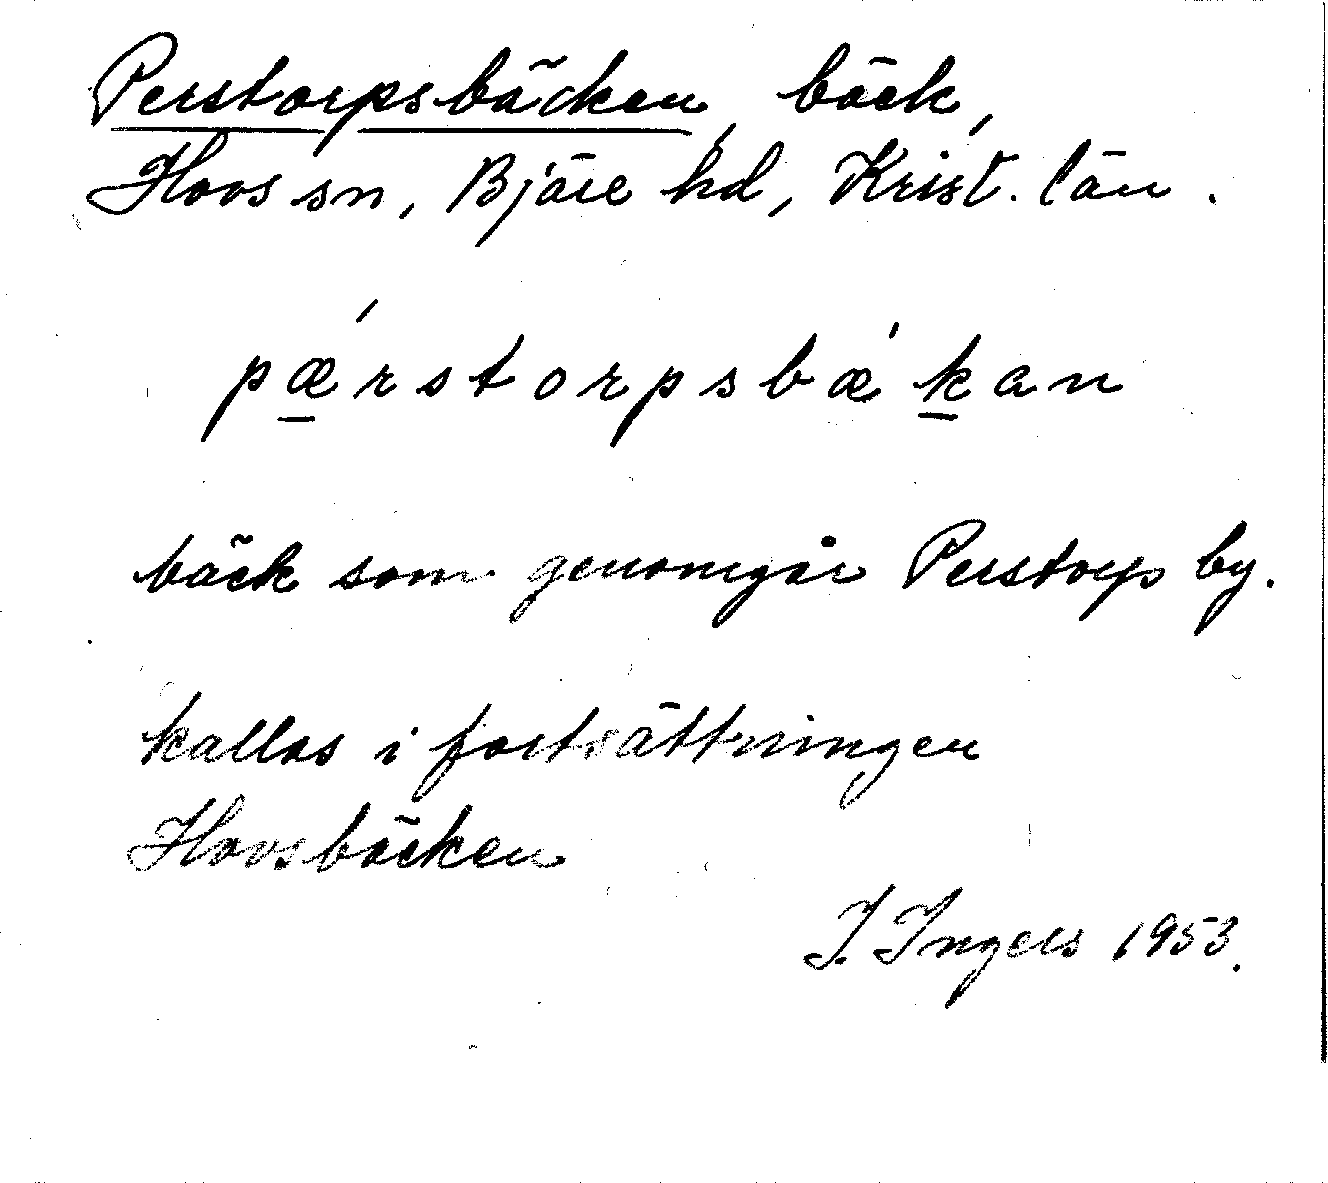 Perstorpsbäcken, bäck,
Hovs sn, Bjäre hd, Krist. län.
pǽ̱rstorpsbǽḵan
bäck som genomgår Perstorp by.
kallas i fortsättningen
Hovsbäcken
I. Ingers 1953.